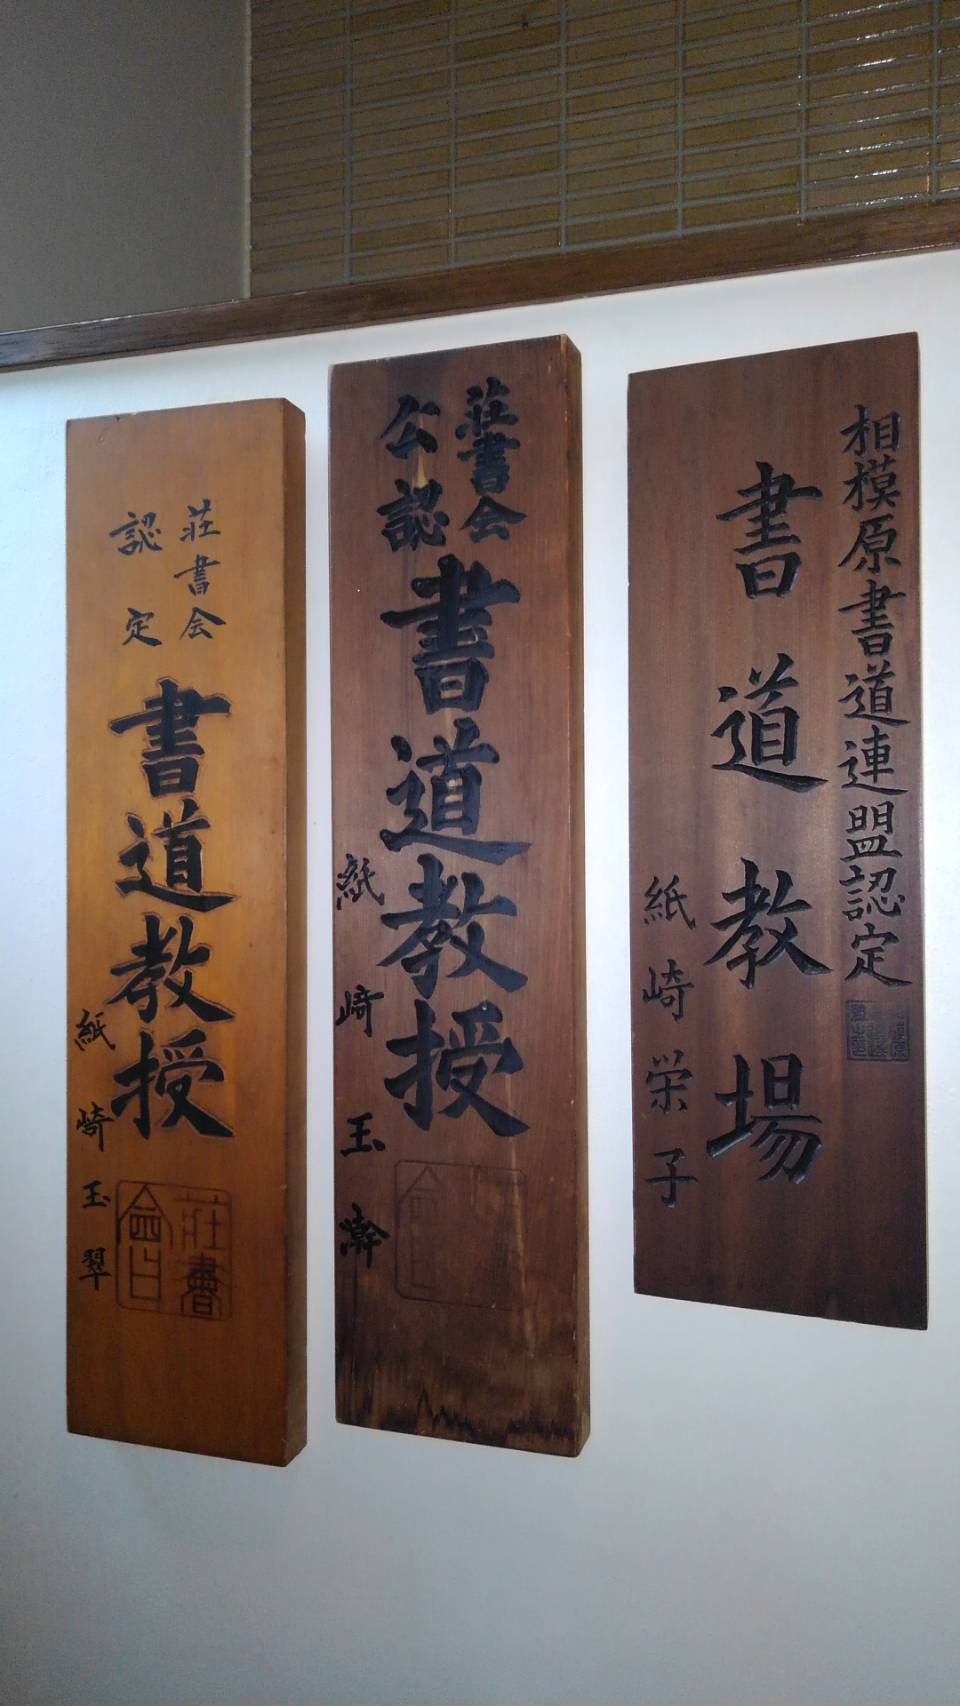 相模原書道連盟認定
書道教場
紙崎栄子
荘書会
公認
書道教授
紙崎玉瀞
荘書会
認定
書道教授
紙崎玉翠
荘書會